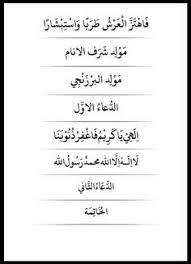 فَاهْتَزَّ الْعَرْشُ طَرَبًا وَاسْتِبْشَارًا
مَوْلِد شَرَفَ الْأَنَام
مَوْلِد الْبَرْزَنْجِي
الدُّعَاءُ الْأَوَّل
إِلٰهِيْ يَا كَرِيْمُ فَاغْفِرْ ذُنُوْبَنَا
لَا إِلٰهَ إِلَّا اللّٰه محمدٌ رَسُوْلُ اللّٰه
الدُّعَاءُ الثَّانِي
الْخَاتِمَة